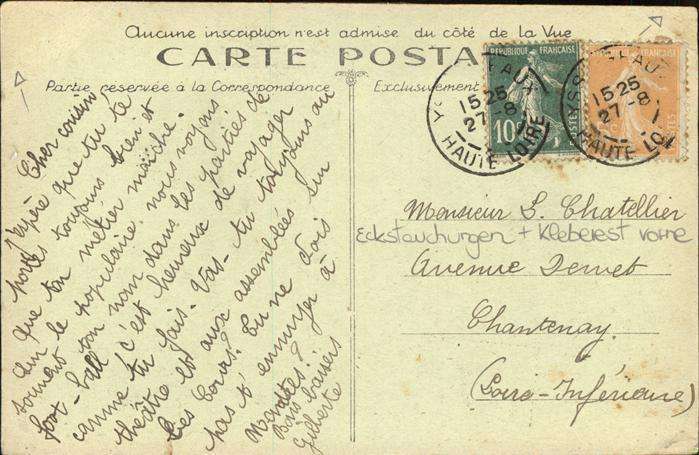 Aucune inscription n'est admise du côté de la Vue
CARTE POSTA
Partie réservée à la Correspondance
Exclusivement
RÉPUBLIQUE FRANÇAISE
10
FRANÇAISE
YSSINGEAUX
15 25
27-8
HAUTE LOIRE
YSSINGEAUX
15 25
27-8
HAUTE LOI
Cher cousin
J'espère que tu te
portes toujours bien et
que ton métier marche.
Sur le populaire nous voyons
souvent ton nom dans les parties de
foot-ball c'est heureux de voyager
comme tu fais. Vas-tu toujours au
théâtre et aux assemblées sur
les Cours? Tu ne dois
pas t'ennuyer à
Nantes?
Bons baisers
Gilberte
Monsieur L. Chatellier
Eckstauchungen + Kleberest vorne
Avenue
Chantenay
(Loire-Inférieure)